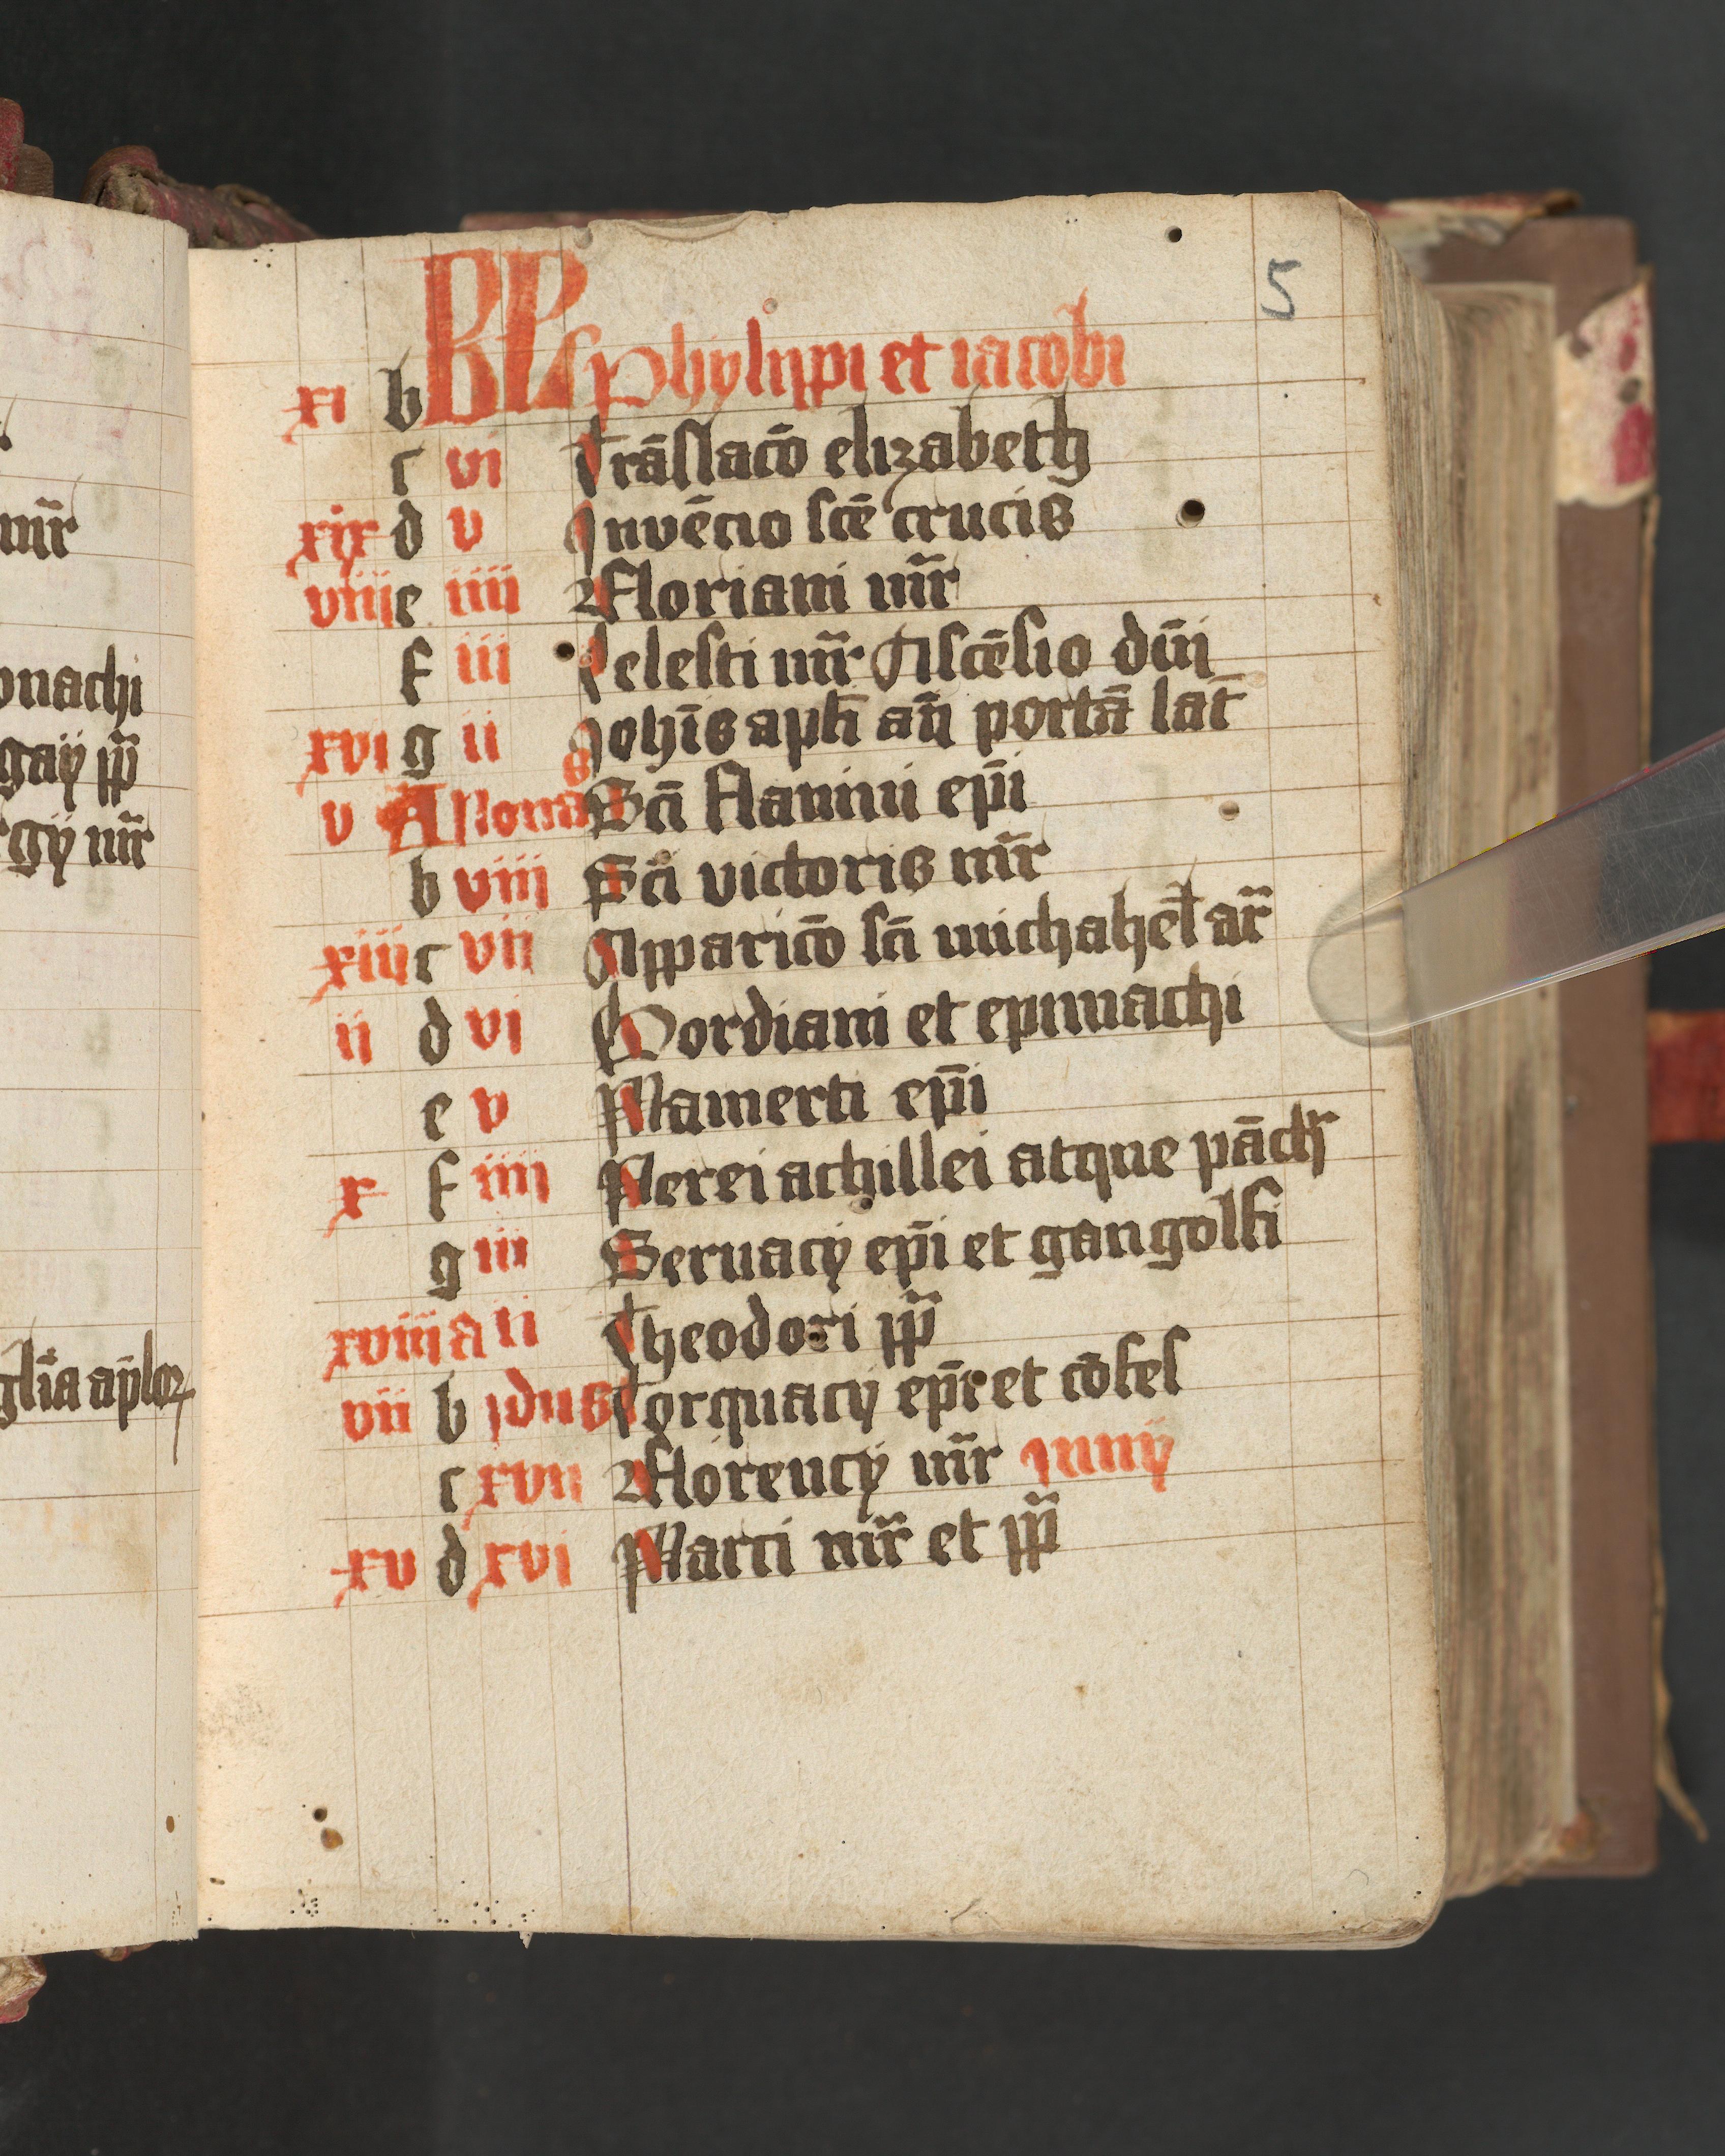 5
xi b KL Phylippi et iacobi
c vi Trāslacō elizabeth
xix d v Invēcio scē crucis
viii e iiii Floriani mr̄
f iii Celesti mr̄ Ascēsio dn̄i
xvi g ii Joh̄is apl̄i an̄ portā lat̄
v A Nonas Sci Flavini ep̄i
b viii Sci victoris mr̄
xiii c vii Apparicō sci michahel̄ ar̄
ii d vi Gordiani et epimachi
e v Mamerti ep̄i
x f iiii Nerei achillei atque pācr̄
g iii Servacij ep̄i et gangolfi
xviii a ii Theodori pp̄
vii b Idus Torquacij ep̄i et cōfes
c xvii Florencij mr̄ Junij
xv d xvi Marci mr̄ et pp̄
mr̄
onachi
gaij pp̄
gij mr̄